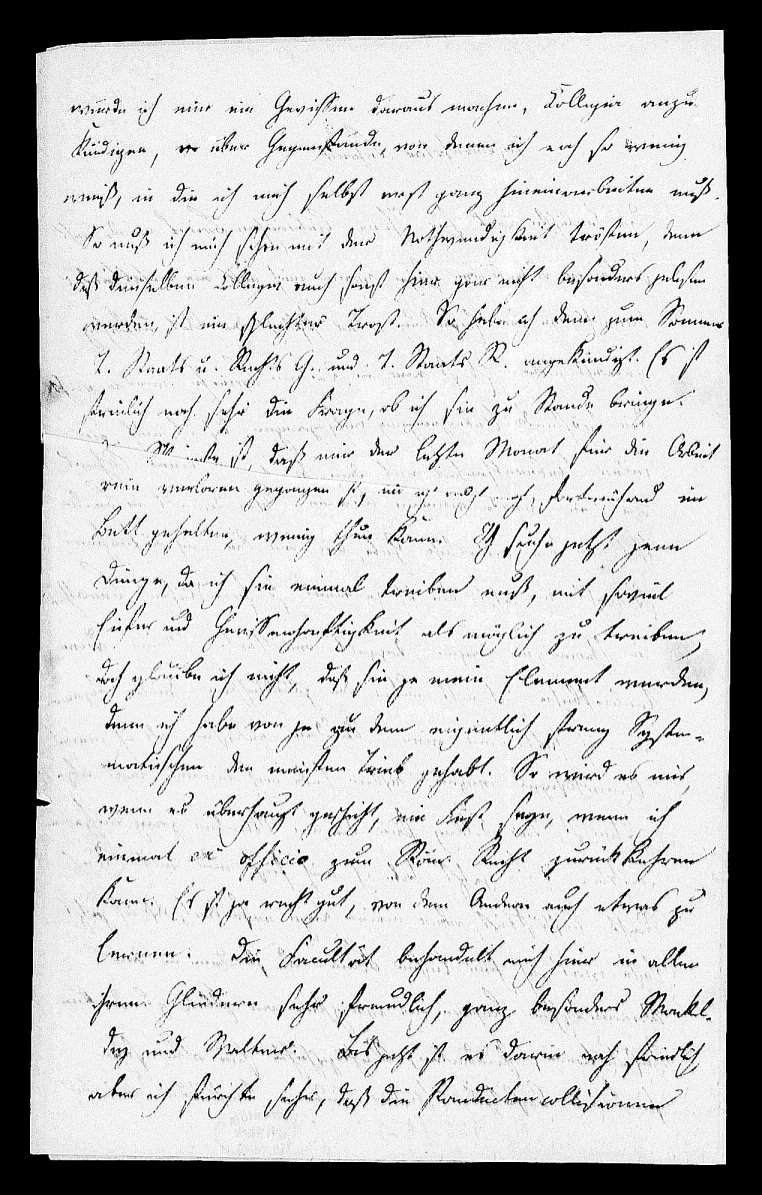 würde ich mir ein Gewissen daraus machen, Collegia anzu
kündigen, über Gegenstände, von denen ich noch so wenig
weiß, in die ich mich selbst erst ganz hineinarbeiten muß.
So muß ich mich schon mit der Nothwendigkeit trösten, denn
daß dieselben Collegia auch sonst hier gar nicht besonders gelesen
werden, ist ein schlechter Trost. So habe ich denn zum Sommer
T. Staats u. Rechts G. und T. Staats R. angekündigt. Es ist
freilich noch sehr die Frage, ob ich sie zu Stande bringe.
ist, daß mir der letzte Monat für die Arbeit
rein verloren gegangen ist, fortwährend im
Bett gehalten, wenig thun kann. Ich suche jetzt jene
Dinge, da ich sie einmal treiben muß, mit soviel
Eifer und Gewissenhaftigkeit als möglich zu treiben,
doch glaube ich nicht, daß sie je mein Element werden,
denn ich habe von je zu dem eigentlich streng Syste-
matischen den meisten Trieb gehabt. So wird es mir,
wenn es überhaupt geschieht, ein Fest seyn, wenn ich
einmal ex officio zum Röm. Recht zurückkehren
kann. Es ist ja recht gut, von dem Andern auch etwas zu
lernen. Die Facultät behandelt mich hier in allen
ihren Gliedern sehr freundlich, ganz besonders Mackel-
dey und Walter. Bis jetzt ist es darin noch friedlich
aber ich fürchte sehr, daß die Pandectencollisionen